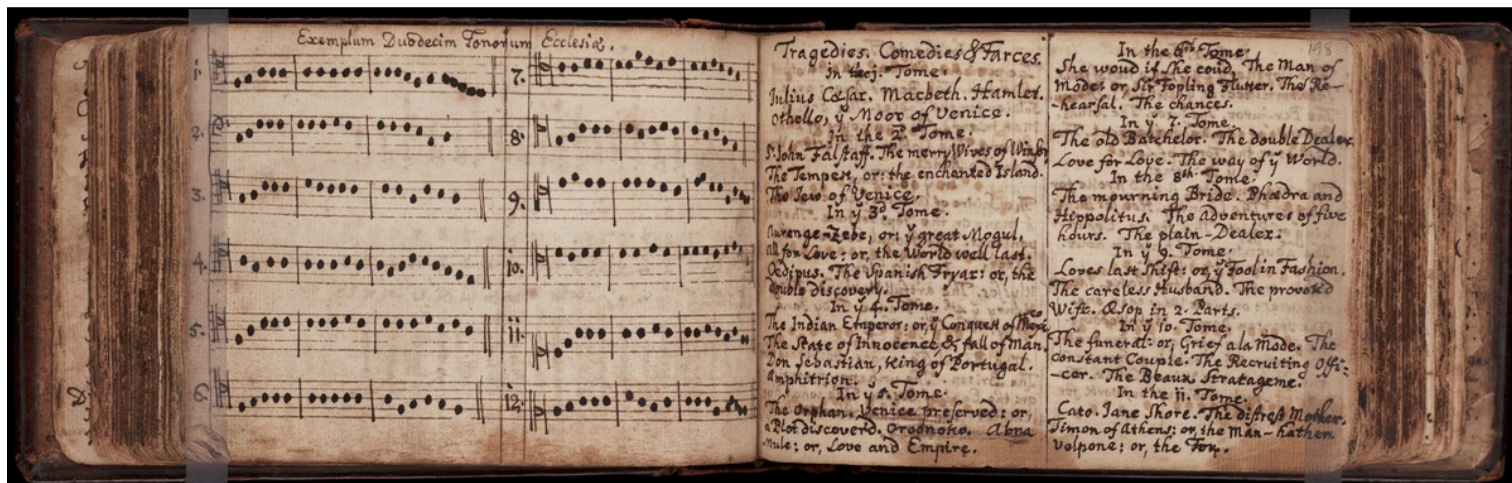 Exemplum Duodecim Tonorum Ecclesiæ.
1.
2.
3.
4.
5.
6.
7.
8.
9.
10.
11.
12.
Tragedies. Comedies & Farces.
in the j. Tome.
Julius Cæsar. Macbeth. Hamlet.
Othello, ÿ Moor of Venice.
In the 2d. Tome.
Sr. John Falstaff. The merry Wives of Winsor
The Tempest, or: the enchanted Island.
The Jew of Venice.
In ÿ 3d. Tome.
Aurenge-Zebe, or; ÿ great Mogul.
all for Love: or, the World well last.
Oedipus. The Spanish Fryar: or, the
double discovery.
In ÿ 4. Tome.
The Indian Emperor: or, ÿ Conquest of Mexi
The State of Innocence, & fall of Man.
Don Sebastian, King of Portugal.
Amphitrion.
In ÿ 5. Tome.
The Orphan. Venice preserved: or,
a Plot discoverd. Oroonoko. Abra
mule: or, Love and Empire.
198
In the 6th. Tome.
She woud if She coud. The Man of
Mode: or, Sir Fopling Flutter. The Re-
-hearsal. The chances.
In ÿ. 7. Tome.
The old Batchelor. The double Dealer.
Love for Love. The way of ÿ World.
In the 8th. Tome.
The mourning Bride. Phædra and
Hippolitus. The Adventures of five
hours. The plain-Dealer.
In ÿ 9. Tome.
Loves last Shift: or, ÿ Fool in Fashion.
The careless Husband. The provok'd
Wife. Æsop in 2. Parts.
In ÿ 10. Tome.
The funeral: or, Grief a la Mode. The
constant Couple. The Recruiting Offi-
-cer. The Beaux Stratageme.
In the 11. Tome.
Cato. Jane Shore. The distrest Mother.
Timon of Athens: or, the Man-hather
volpone: or, the Fox.